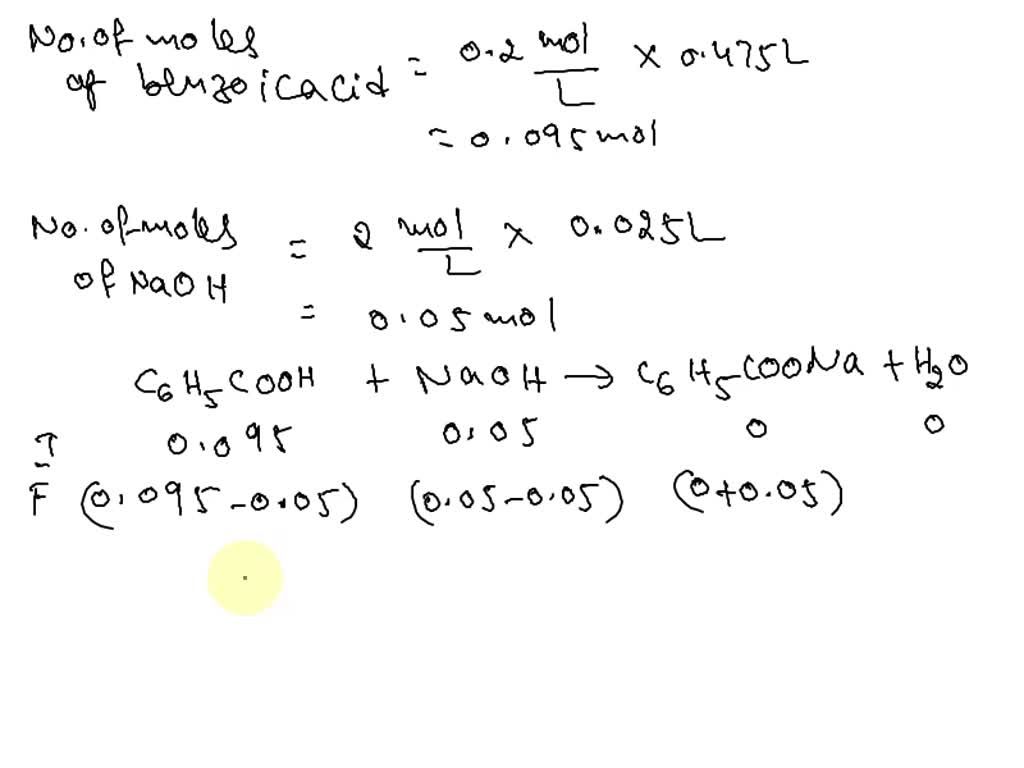 No. of moles of benzoic acid = 0.2 mol/L × 0.475L
= 0.095 mol
No. of moles of NaOH = 2 mol/L × 0.025L
= 0.05 mol
C6H5COOH + NaOH → C6H5COONa + H2O
I 0.095 0.05 0 0
F (0.095-0.05) (0.05-0.05) (0+0.05)